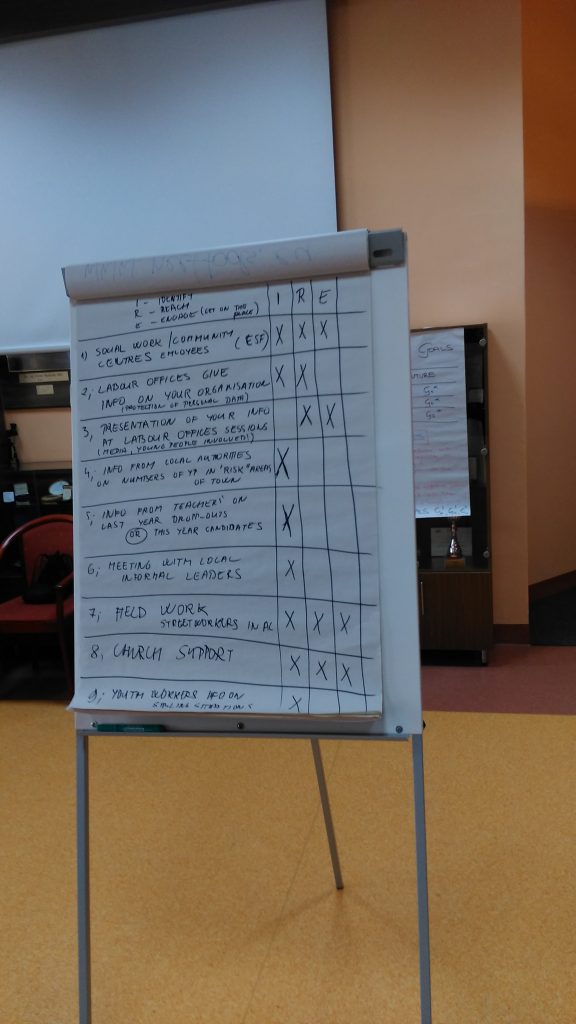 I - IDENTIFY
R - REACH
E - ENGAGE (GET ON THE
PLACE)
I R E
1) SOCIAL WORK / COMMUNITY (ESF) X X X
CENTRES EMLOYEES
2; LABOUR OFFICES GIVE X X
INFO ON YOUR ORGANISATION
(PROTECTION OF PERSONAL DATA)
3, PRESENTATION OF YOUR INFO X X
AT LABOUR OFFICES SESSIONS
(MEDIA, YOUNG PEOPLE INVOLVED!)
4; INFO FROM LOCAL AUTHORITIES X
ON NUMBERS OF YP IN "RISK" AREAS
OF TOWN
5; INFO FROM TEACHERS ON X
LAST YEAR DROP-OUTS
OR THIS YEAR CANDIDATES
6; MEETING WITH LOCAL X
INFORMAL LEADERS
7; FIELD WORK X X X
STREETWORKERS IN AC
8, CHURCH SUPPORT X X X
9; YOUTH WORKERS INFO ON X
GOALS